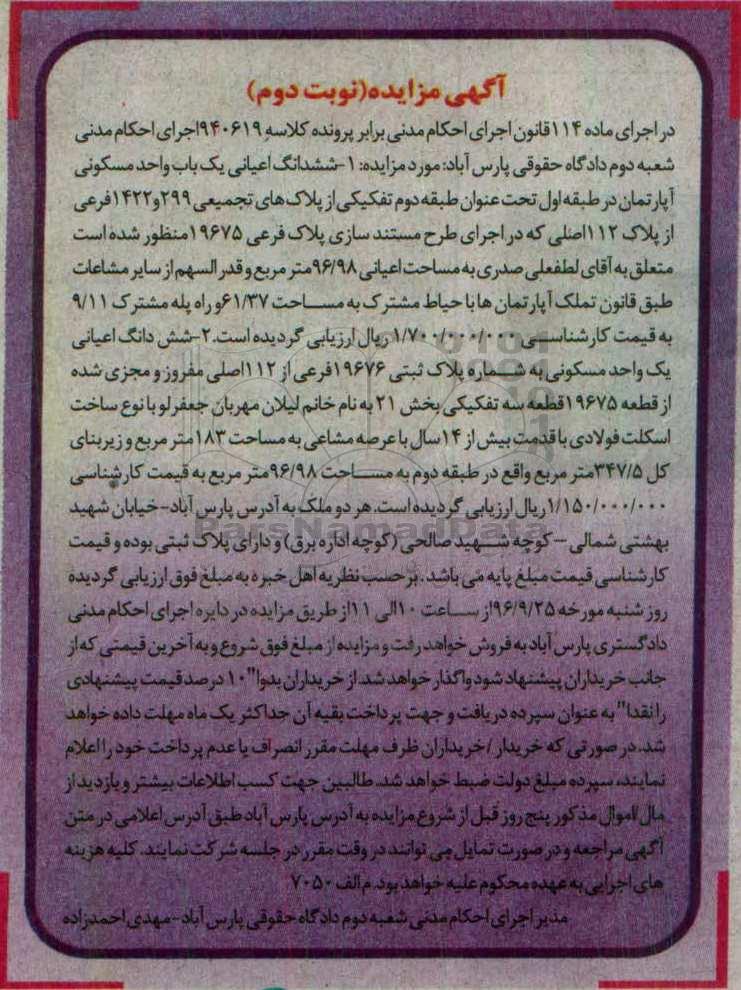 آگهی مزایده(نوبت دوم)
در اجرای ماده ۱۱۴قانون اجرای احکام مدنی برابر پرونده کلاسه ۹۴۰۶۱۹اجرای احکام مدنی
شعبه دوم دادگاه حقوقی پارس آباد: مورد مزایده: ۱-ششدانگ اعیانی یک باب واحد مسکونی
آپارتمان در طبقه اول تحت عنوان طبقه دوم تفکیکی از پلاک های تجمیعی ۲۹۹و۱۴۲۲فرعی
از پلاک ۱۱۲اصلی که در اجرای طرح مستند سازی پلاک فرعی ۱۹۶۷۵منظور شده است
متعلق به آقای لطفعلی صدری به مساحت اعیانی ۹۶/۹۸متر مربع و قدر السهم از سایر مشاعات
طبق قانون تملک آپارتمان ها با حیاط مشترک به مساحت ۶۱/۳۷و راه پله مشترک ۹/۱۱
به قیمت کارشناسی ۱/۷۰۰/۰۰۰/۰۰۰ ریال ارزیابی گردیده است. ۲-شش دانگ اعیانی
یک واحد مسکونی به شماره پلاک ثبتی ۱۹۶۷۶فرعی از ۱۱۲اصلی مفروز و مجزی شده
از قطعه ۱۹۶۷۵قطعه سه تفکیکی بخش ۲۱ به نام خانم لیلان مهربان جعفرلو با نوع ساخت
اسکلت فولادی با قدمت بیش از ۱۴سال با عرصه مشاعی به مساحت ۱۸۳متر مربع و زیربنای
کل ۳۴۷/۵متر مربع واقع در طبقه دوم به مساحت ۹۶/۹۸متر مربع به قیمت کارشناسی
۱/۱۵۰/۰۰۰/۰۰۰ریال ارزیابی گردیده است. هر دو ملک به آدرس پارس آباد-خیابان شهید
بهشتی شمالی –کوچه شهید صالحی (کوچه اداره برق) و دارای پلاک ثبتی بوده و قیمت
کارشناسی قیمت مبلغ پایه می باشد. برحسب نظریه اهل خبره به مبلغ فوق ارزیابی گردیده
روز شنبه مورخه ۹۶/۹/۲۵از ساعت ۱۰الی ۱۱از طریق مزایده در دایره اجرای احکام مدنی
دادگستری پارس آباد به فروش خواهد رفت و مزایده از مبلغ فوق شروع و به آخرین قیمتی که از
جانب خریداران پیشنهاد شود واگذار خواهد شد. از خریداران بدوا" ۱۰ درصد قیمت پیشنهادی
را نقدا" به عنوان سپرده دریافت و جهت پرداخت بقیه آن حداکثر یک ماه مهلت داده خواهد
شد. در صورتی که خریدار /خریداران ظرف مهلت مقرر انصراف یا عدم پرداخت خود را اعلام
نمایند، سپرده مبلغ دولت ضبط خواهد شد. طالبین جهت کسب اطلاعات بیشتر و بازدید از
مال /اموال مذکور پنج روز قبل از شروع مزایده به آدرس پارس آباد طبق آدرس اعلامی در متن
آگهی مراجعه و در صورت تمایل می توانند در وقت مقرر در جلسه شرکت نمایند. کلیه هزینه
های اجرایی به عهده محکوم علیه خواهد بود. م الف ۷۰۵۰
مدیر اجرای احکام مدنی شعبه دوم دادگاه حقوقی پارس آباد-مهدی احمدزاده
ParsNamadData